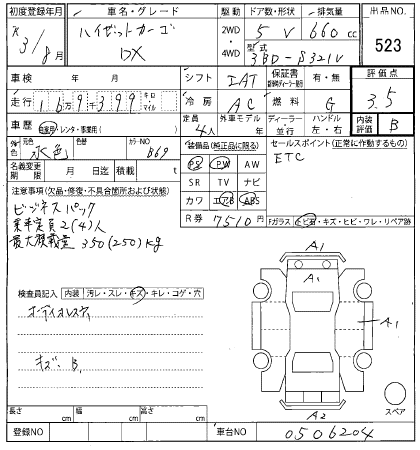 初度登録年月
車名・グレード
駆動
ドア数・形状
排気量
出品NO.
R 3/8月
ハイゼットカーゴ
DX
2WD
4WD
5 V
660 cc
型式
3BD-S321V
523
車検
年 月
シフト
IAT
保証書
有・無
評価点
3.5
走行
16万9千399
キロ
マイル
冷房
AC
燃料
G
車歴
自家用・レンタ・事業用( )
定員
4人
外車モデル
年
ディーラー・並行
ハンドル
左・右
内装評価
B
外色
元色
水色
色替
カラーNO
B69
装備品(純正品に限る)
セールスポイント(正常に動作するもの)
ETC
名義変更期限
月 日
積載
t
PS PW AW
SR TV ナビ
カワ エアB ABS
注意事項(欠品・修復・不具合箇所および状態)
ビジネスパック
乗車定員2(4)人
最大積載量 350(250)kg
R券
7510円
Fガラス トビ石・キズ・ヒビ・ワレ・リペア跡
検査員記入
内装
汚レ・スレ・キズ・キレ・コゲ・穴
オーディオレス
キズ B
A1
A1
A1
A2
スペア
長さ cm
幅 cm
高さ cm
登録NO
車台NO
0506204